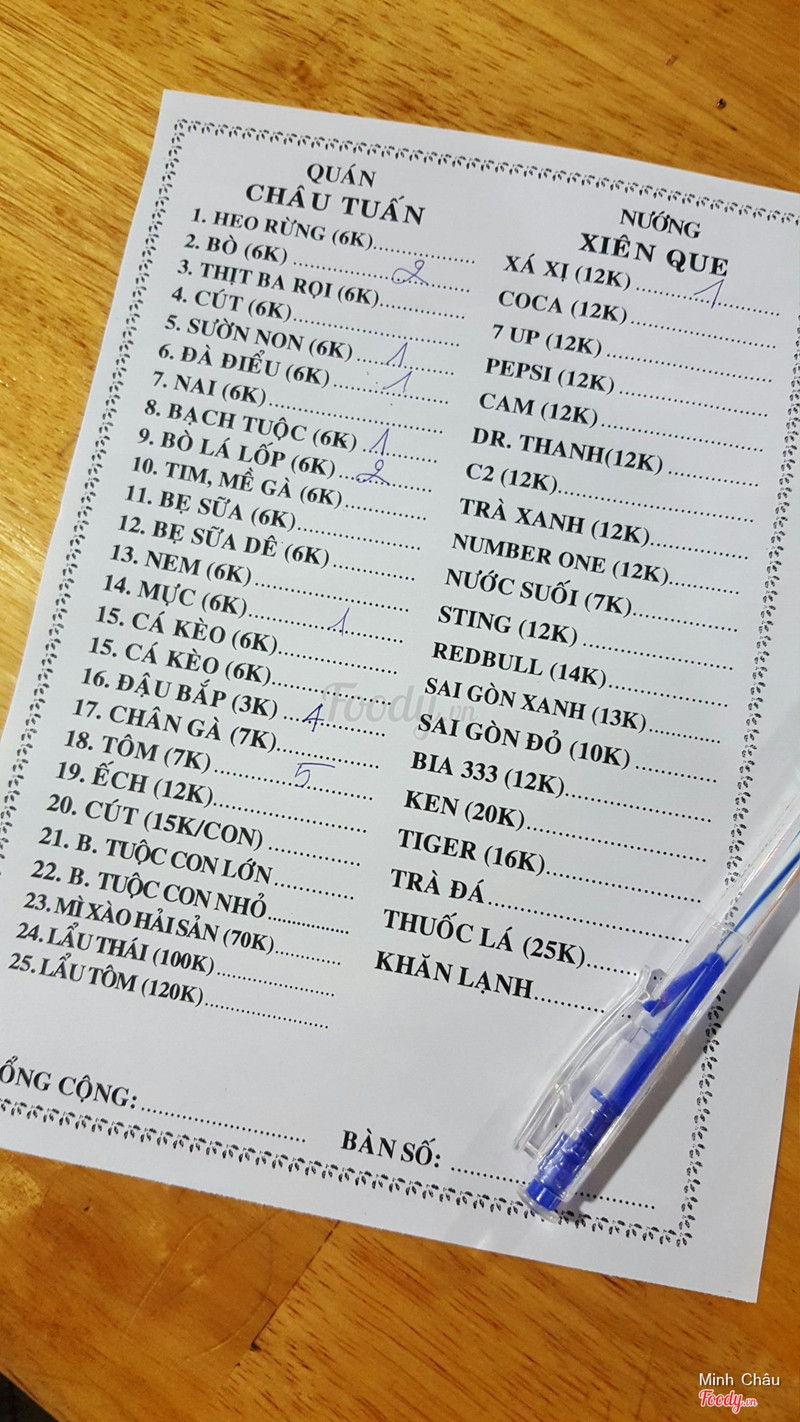 QUÁN
CHÂU TUẤN
1. HEO RỪNG (6K)....................
2. BÒ (6K) .................... 2
3. THỊT BA RỌI (6K)................
4. CÚT (6K)................................
5. SƯỜN NON (6K) ........ 1
6. ĐÀ ĐIỂU (6K)............ 1
7. NAI (6K)..................................
8. BẠCH TUỘC (6K) .... 1
9. BÒ LÁ LỐP (6K) .... 2
10. TIM, MỀ GÀ (6K)................
11. BẸ SỮA (6K)........................
12. BẸ SỮA DÊ (6K) ................
13. NEM (6K)..............................
14. MỰC (6K)................ 1
15. CÁ KÈO (6K)......................
15. CÁ KÈO (6K)......................
16. ĐẬU BẮP (3K) .... 4
17. CHÂN GÀ (7K)....................
18. TÔM (7K)................ 5
19. ẾCH (12K)............................
20. CÚT (15K/CON) ................
21. B. TUỘC CON LỚN..............
22. B. TUỘC CON NHỎ..............
23. MÌ XÀO HẢI SẢN (70K)............
24. LẨU THÁI (100K)....................
25. LẨU TÔM (120K)....................
NƯỚNG
XIÊN QUE
XÁ XỊ (12K) ............ 1
COCA (12K)..........................
7 UP (12K) ............................
PEPSI (12K) ..........................
CAM (12K)............................
DR. THANH(12K) ................
C2 (12K)................................
TRÀ XANH (12K)................
NUMBER ONE (12K)............
NƯỚC SUỐI (7K)..................
STING (12K) ........................
REDBULL (14K)..................
SAI GÒN XANH (13K)............
SAI GÒN ĐỎ (10K) ..............
BIA 333 (12K)......................
KEN (20K)............................
TIGER (16K)........................
TRÀ ĐÁ................................
THUỐC LÁ (25K)..........
KHĂN LẠNH............
ỔNG CỘNG: ........................
BÀN SỐ: ............................
Foody.vn
Minh Châu
Foody.vn